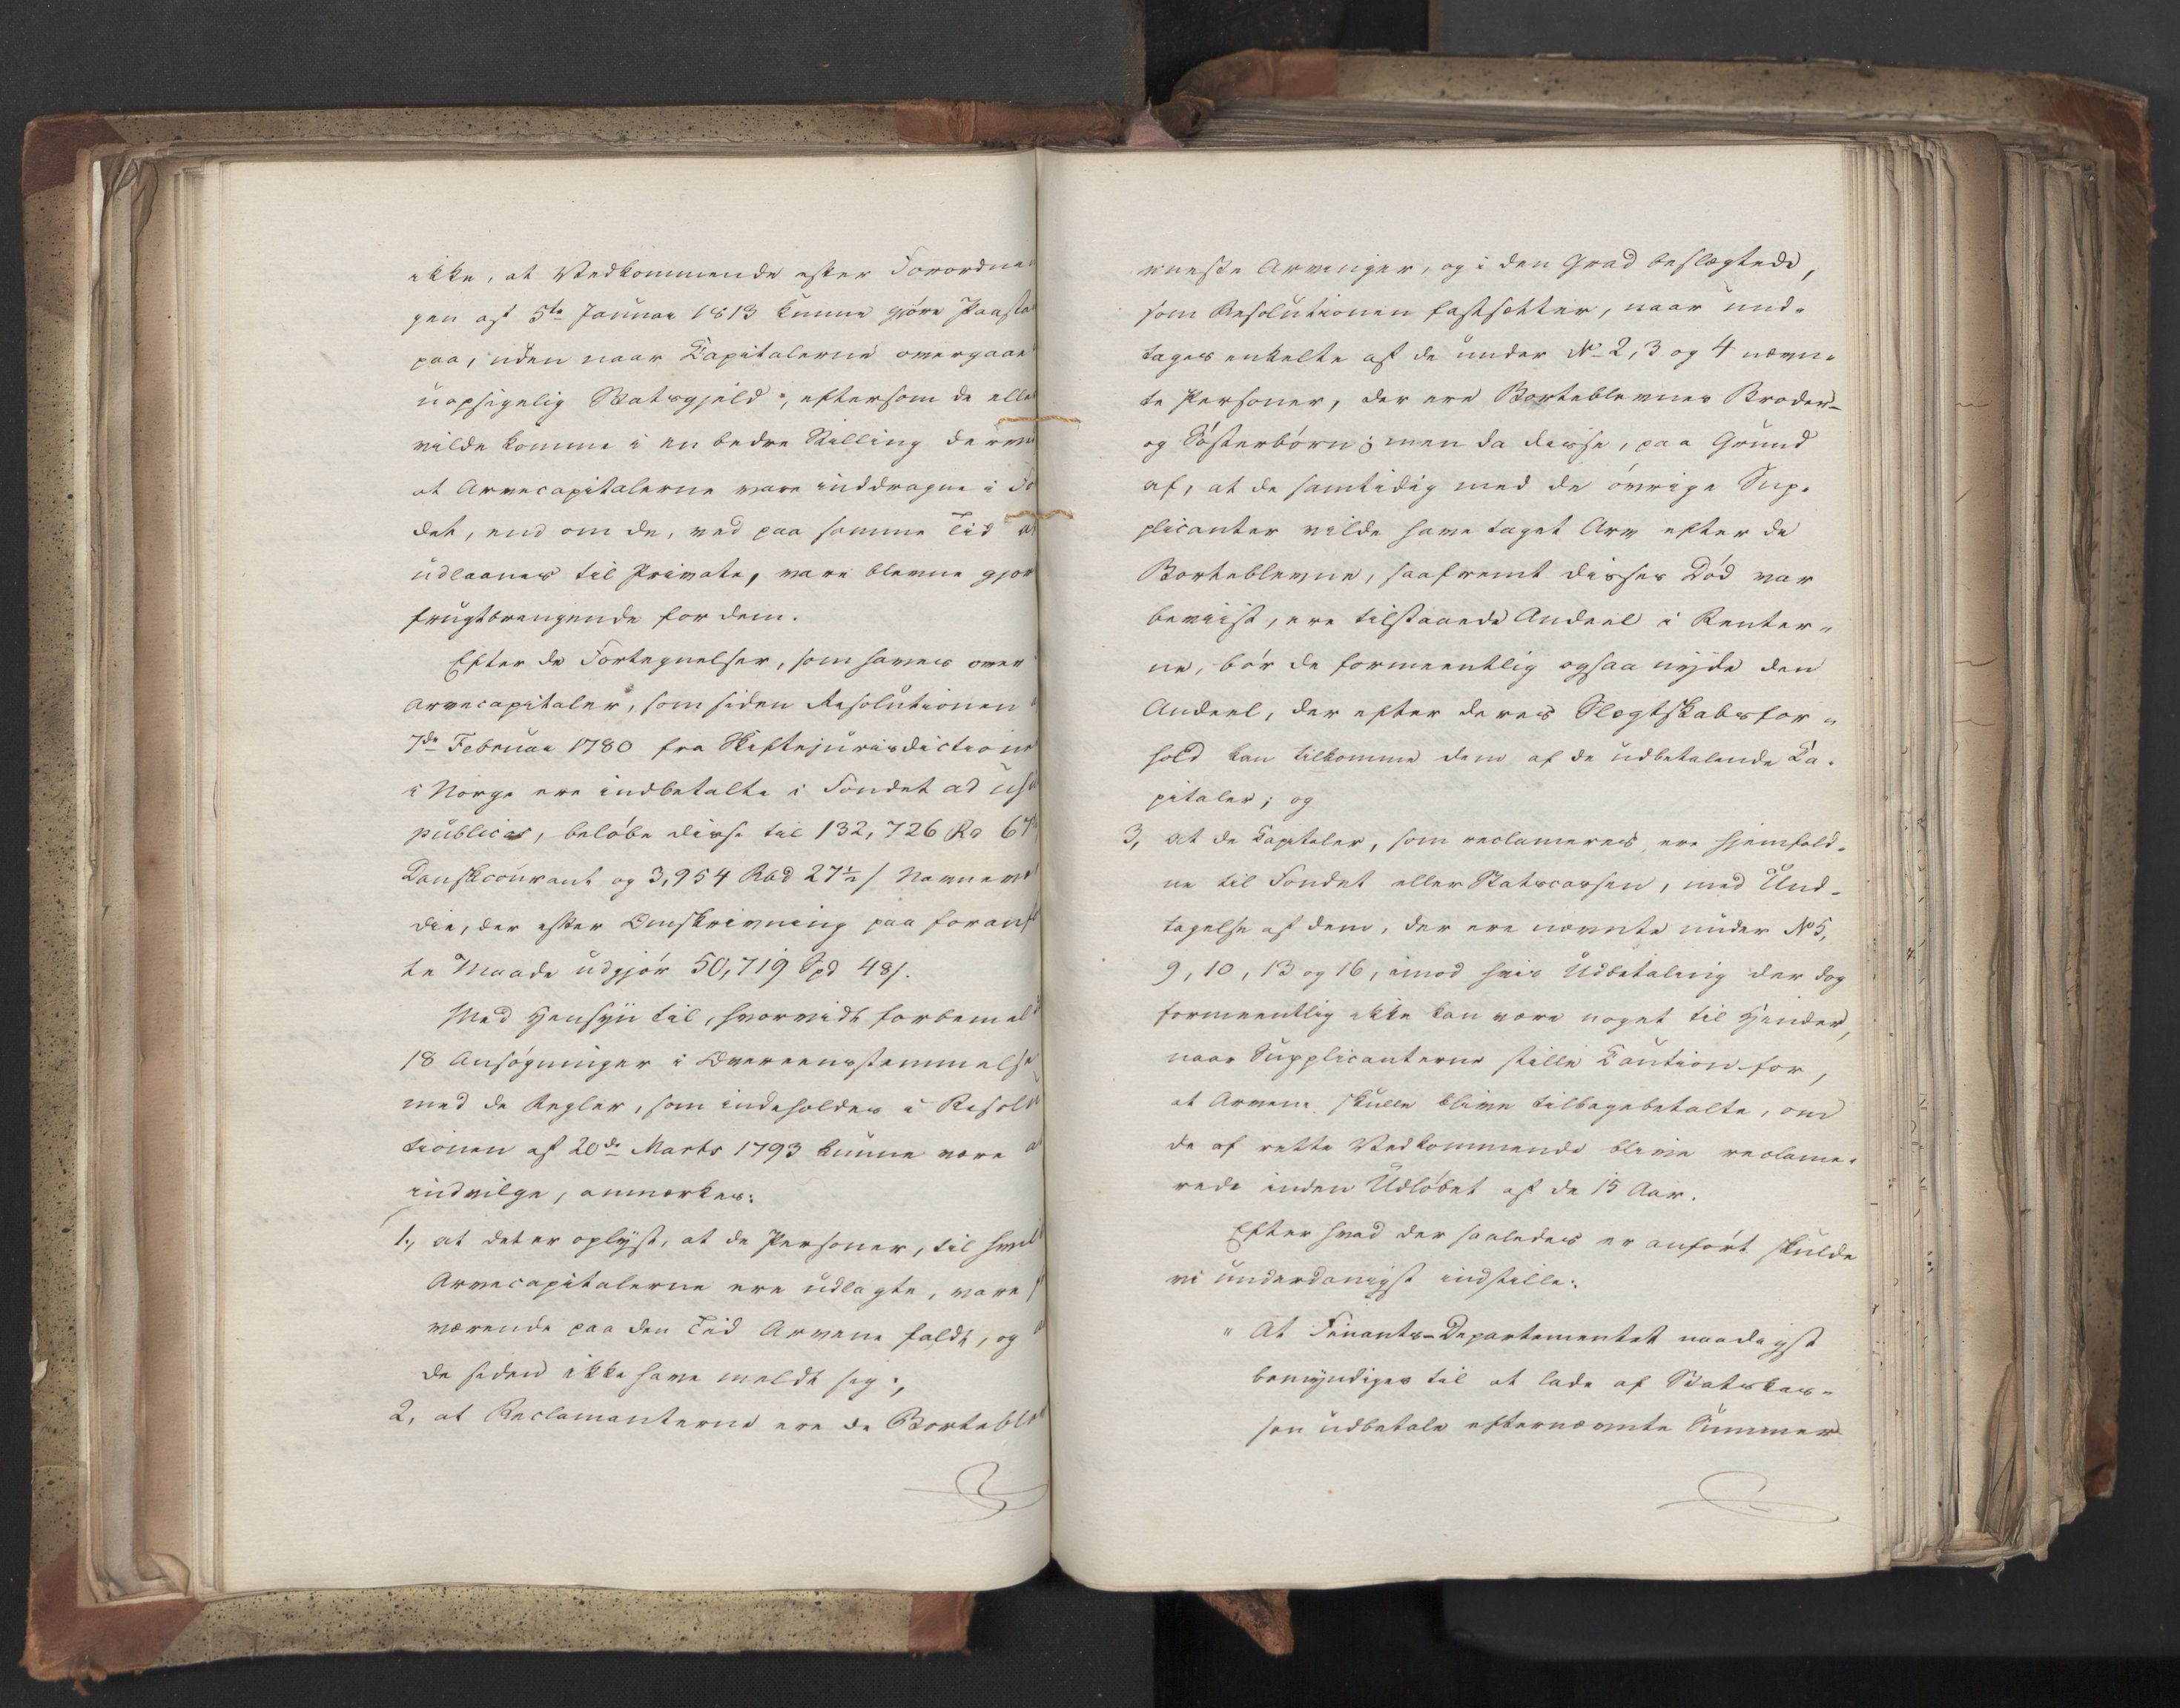 ikke, at Vedkommende efter Forordnin
gen af 5te Januar 1813 kunne gjöre Paasta
paa, uden naar Capitalerne overgaae
uopsigelig Statsgjeld, eftersom de elle
vilde komme i en bedre Stilling derved
at Arvecapitalerne vare inddragne i Fo
det, end om de, ved paa samme Tid a
udlaanes til Private, vare blevne gjor
frugtbringende for dem.
Efter de Fortegnelser, som haves over
Arvecapitaler, som siden Resolutionen a
7de Februar 1780 fra Skiftejurisdictione
i Norge ere indbetalte i Fondet ad usu
publicos, belöbe disse til 132,726 Rd 67
Danskcourant og 3,954 Rbd 27½ s Navnevær
die, der efter Omskrivning paa foranf
te Maade udgjör 50,719 Spd 48 s.
Med Hensyn til, hvorvidt forbemel
18 Ansögninger i Overeensstemmelse
med de Regler, som indeholdes i Resolu
tionen af 20de Marts 1793 kunne være a
indvilge, anmærkes:
1., at det er oplyst, at de Personer, til hvil
Arvecapitalerne ere udlagte, vare f
værende paa den Tid Arvene faldt, og a
de siden ikke have meldt sig;
2, at Reclamanterne ere de Borteble
vneste Arvinger, og i den Grad beslægtede,
som Resolutionen fastsetter, naar und-
tages enkelte af de under No 2, 3 og 4 nævn-
te Personer, der ereBorteblevnes Broder-
og Sösterbörn; men da disse, paa Grund
af, at de samtidig med de övrige Sup-
plicanter vilde have taget Arv efter de
Borteblevne, saafremt disses Död var
beviist, ere tilstaaede Andeel i Renter-
ne, bör de formeentlig ogsaa nyde den
Andeel, der efter deres Slægtskabsfor-
hold kan tilkomme dem af de udbetalende Ca-
pitaler; og
3, at de Capitaler, som reclameres, ere hjemfald-
ne til Fondet eller Statscassen, med Und-
tagelse af dem, der ere nævnte under No 5,
9, 10, 13 og 16, imod hvis Udbetaling der dog
formeentlig ikke kan være noget til Hinder,
naar Supplicanterne stille Caution for,
at Arvene skulle blive tilbagebetalte, om
de af rette Vedkommende blive reclame-
rede inden Udlöbet af de 15 Aar.
Efter hvad der saaledes er anfört skulde
vi underdanigst indstille:
" At Finants-Departementet naadigst
bemyndiges til at lade af Statskas-
sen udbetale efternævnte Summer